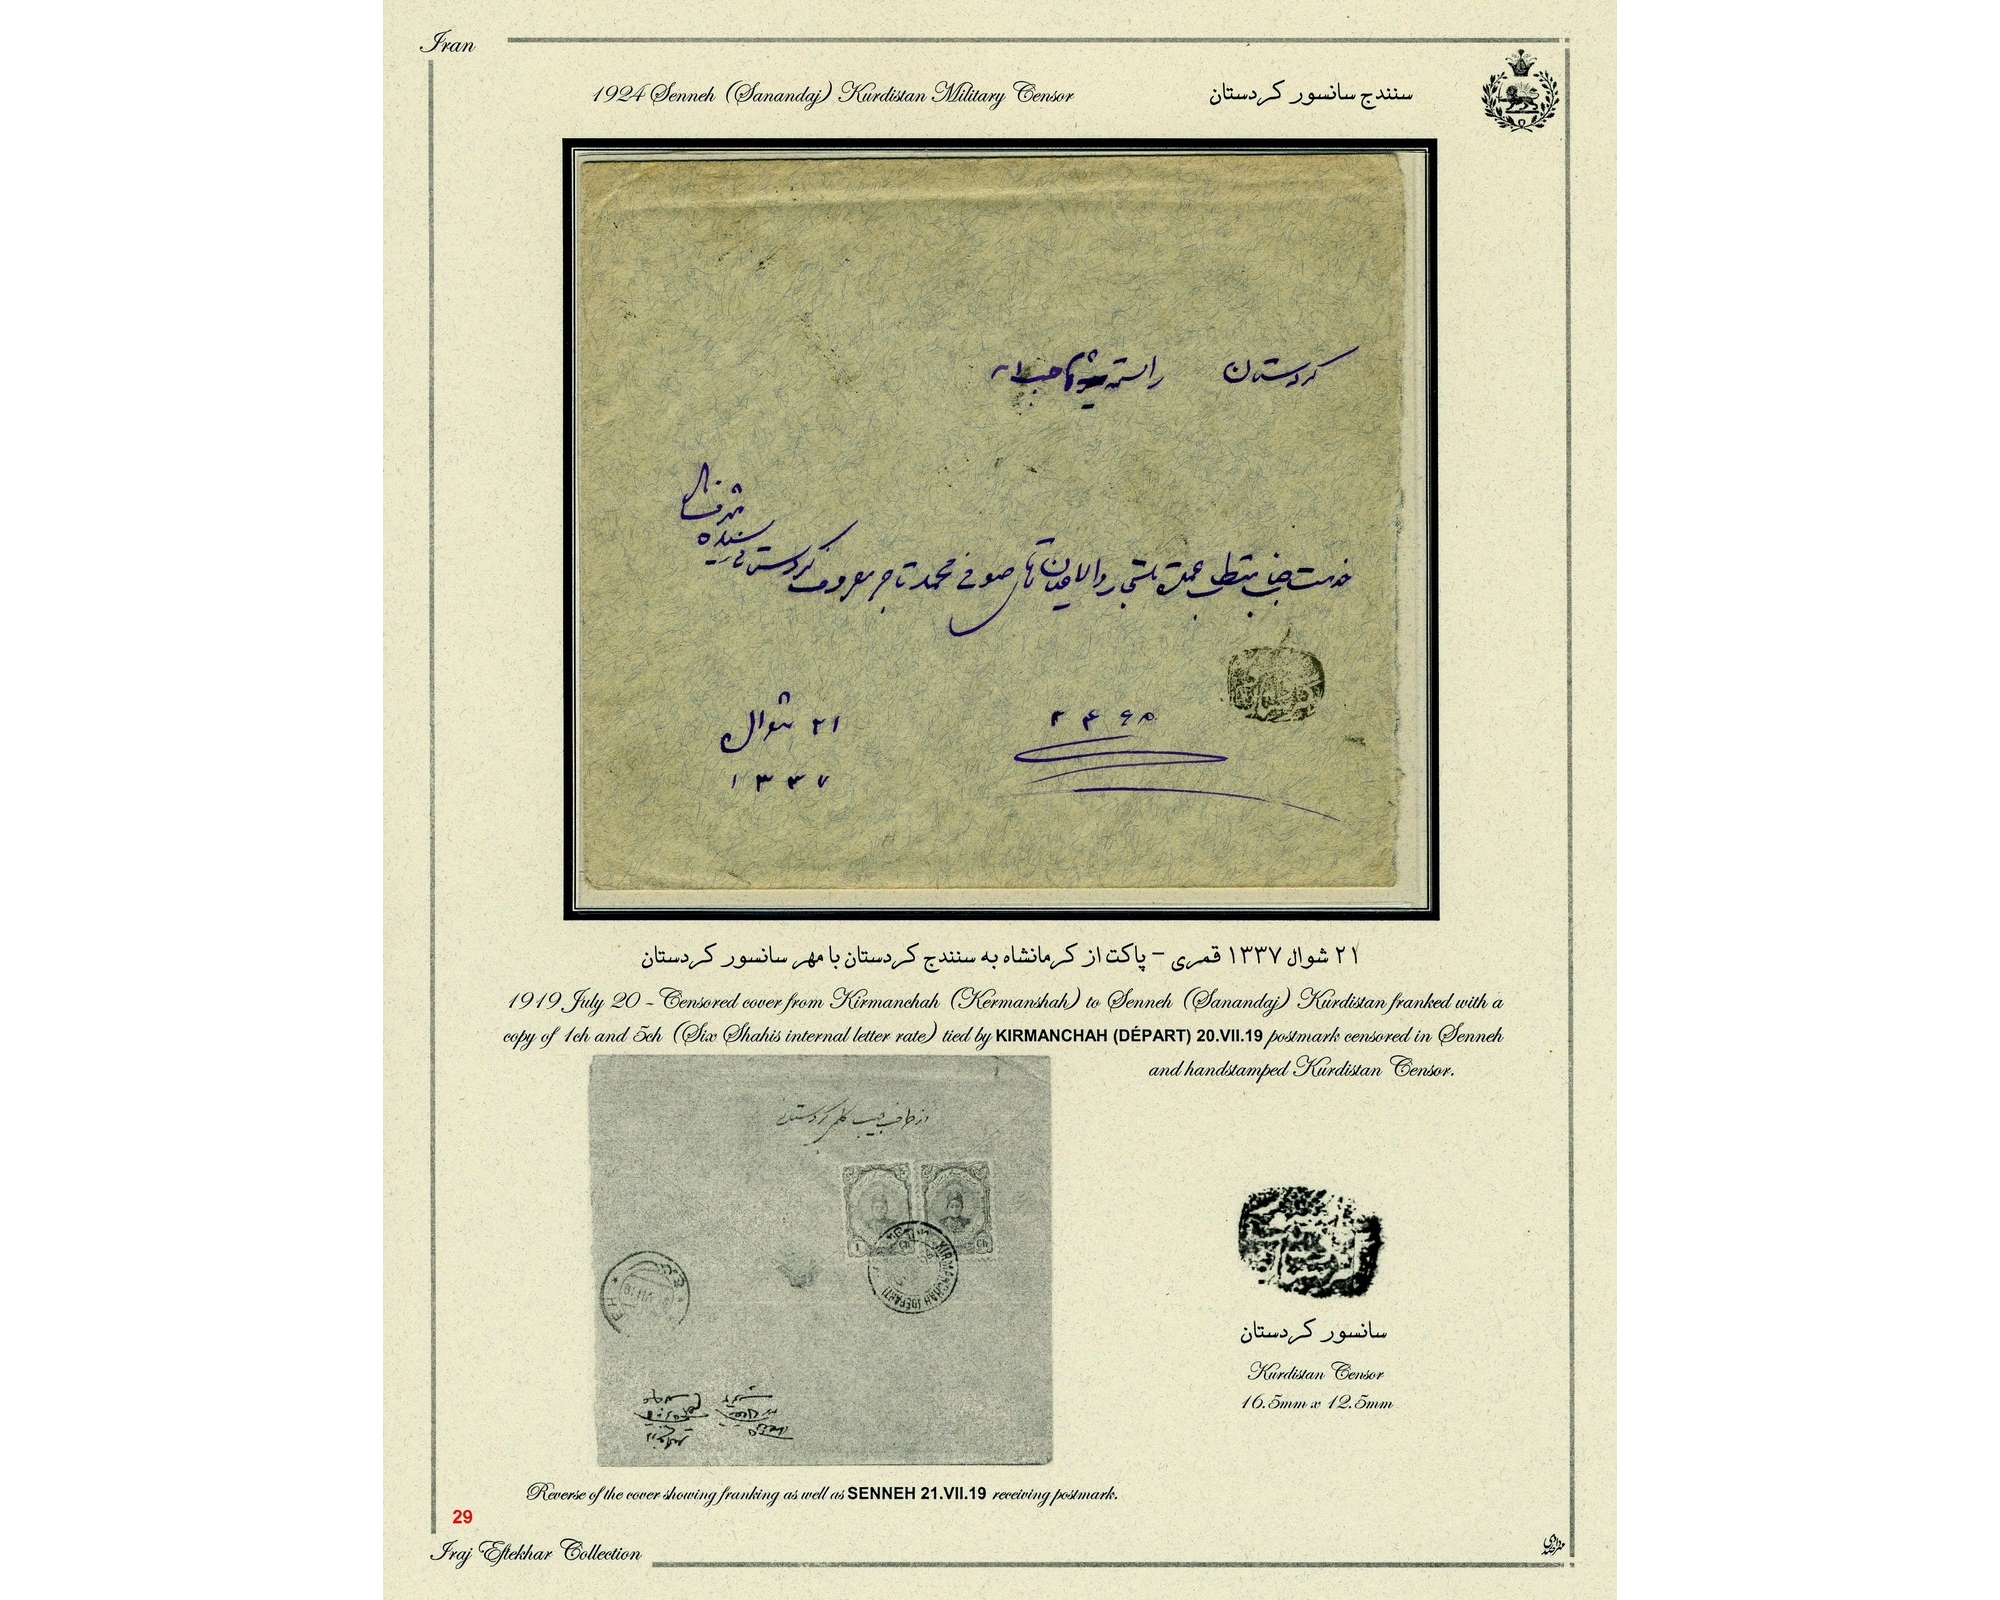 Iran
1924 Senneh (Sanandaj) Kurdistan Military Censor
سنندج سانسور کردستان
کردستان
خدمت جناب عمدة التجار والاعیان آقای صوفی محمد تاجر معروف کردستانی
مشرف
۲۴۶۵
۲۱ شوال
۱۳۳۷
۲۱ شوال ۱۳۳۷ قمری – پاکت از کرمانشاه به سنندج کردستان با مهر سانسور کردستان
1919 July 20 - Censored cover from Kirmanchah (Kermanshah) to Senneh (Sanandaj) Kurdistan franked with a
copy of 1ch and 5ch (Six Shahis internal letter rate) tied by KIRMANCHAH (DÉPART) 20.VII.19 postmark censored in Senneh
and handstamped Kurdistan Censor.
KIRMANCHAH (DEPART)
سانسور کردستان
Kurdistan Censor
16.5mm x 12.5mm
Reverse of the cover showing franking as well as SENNEH 21.VII.19 receiving postmark.
29
Iraj Eftekhar Collection